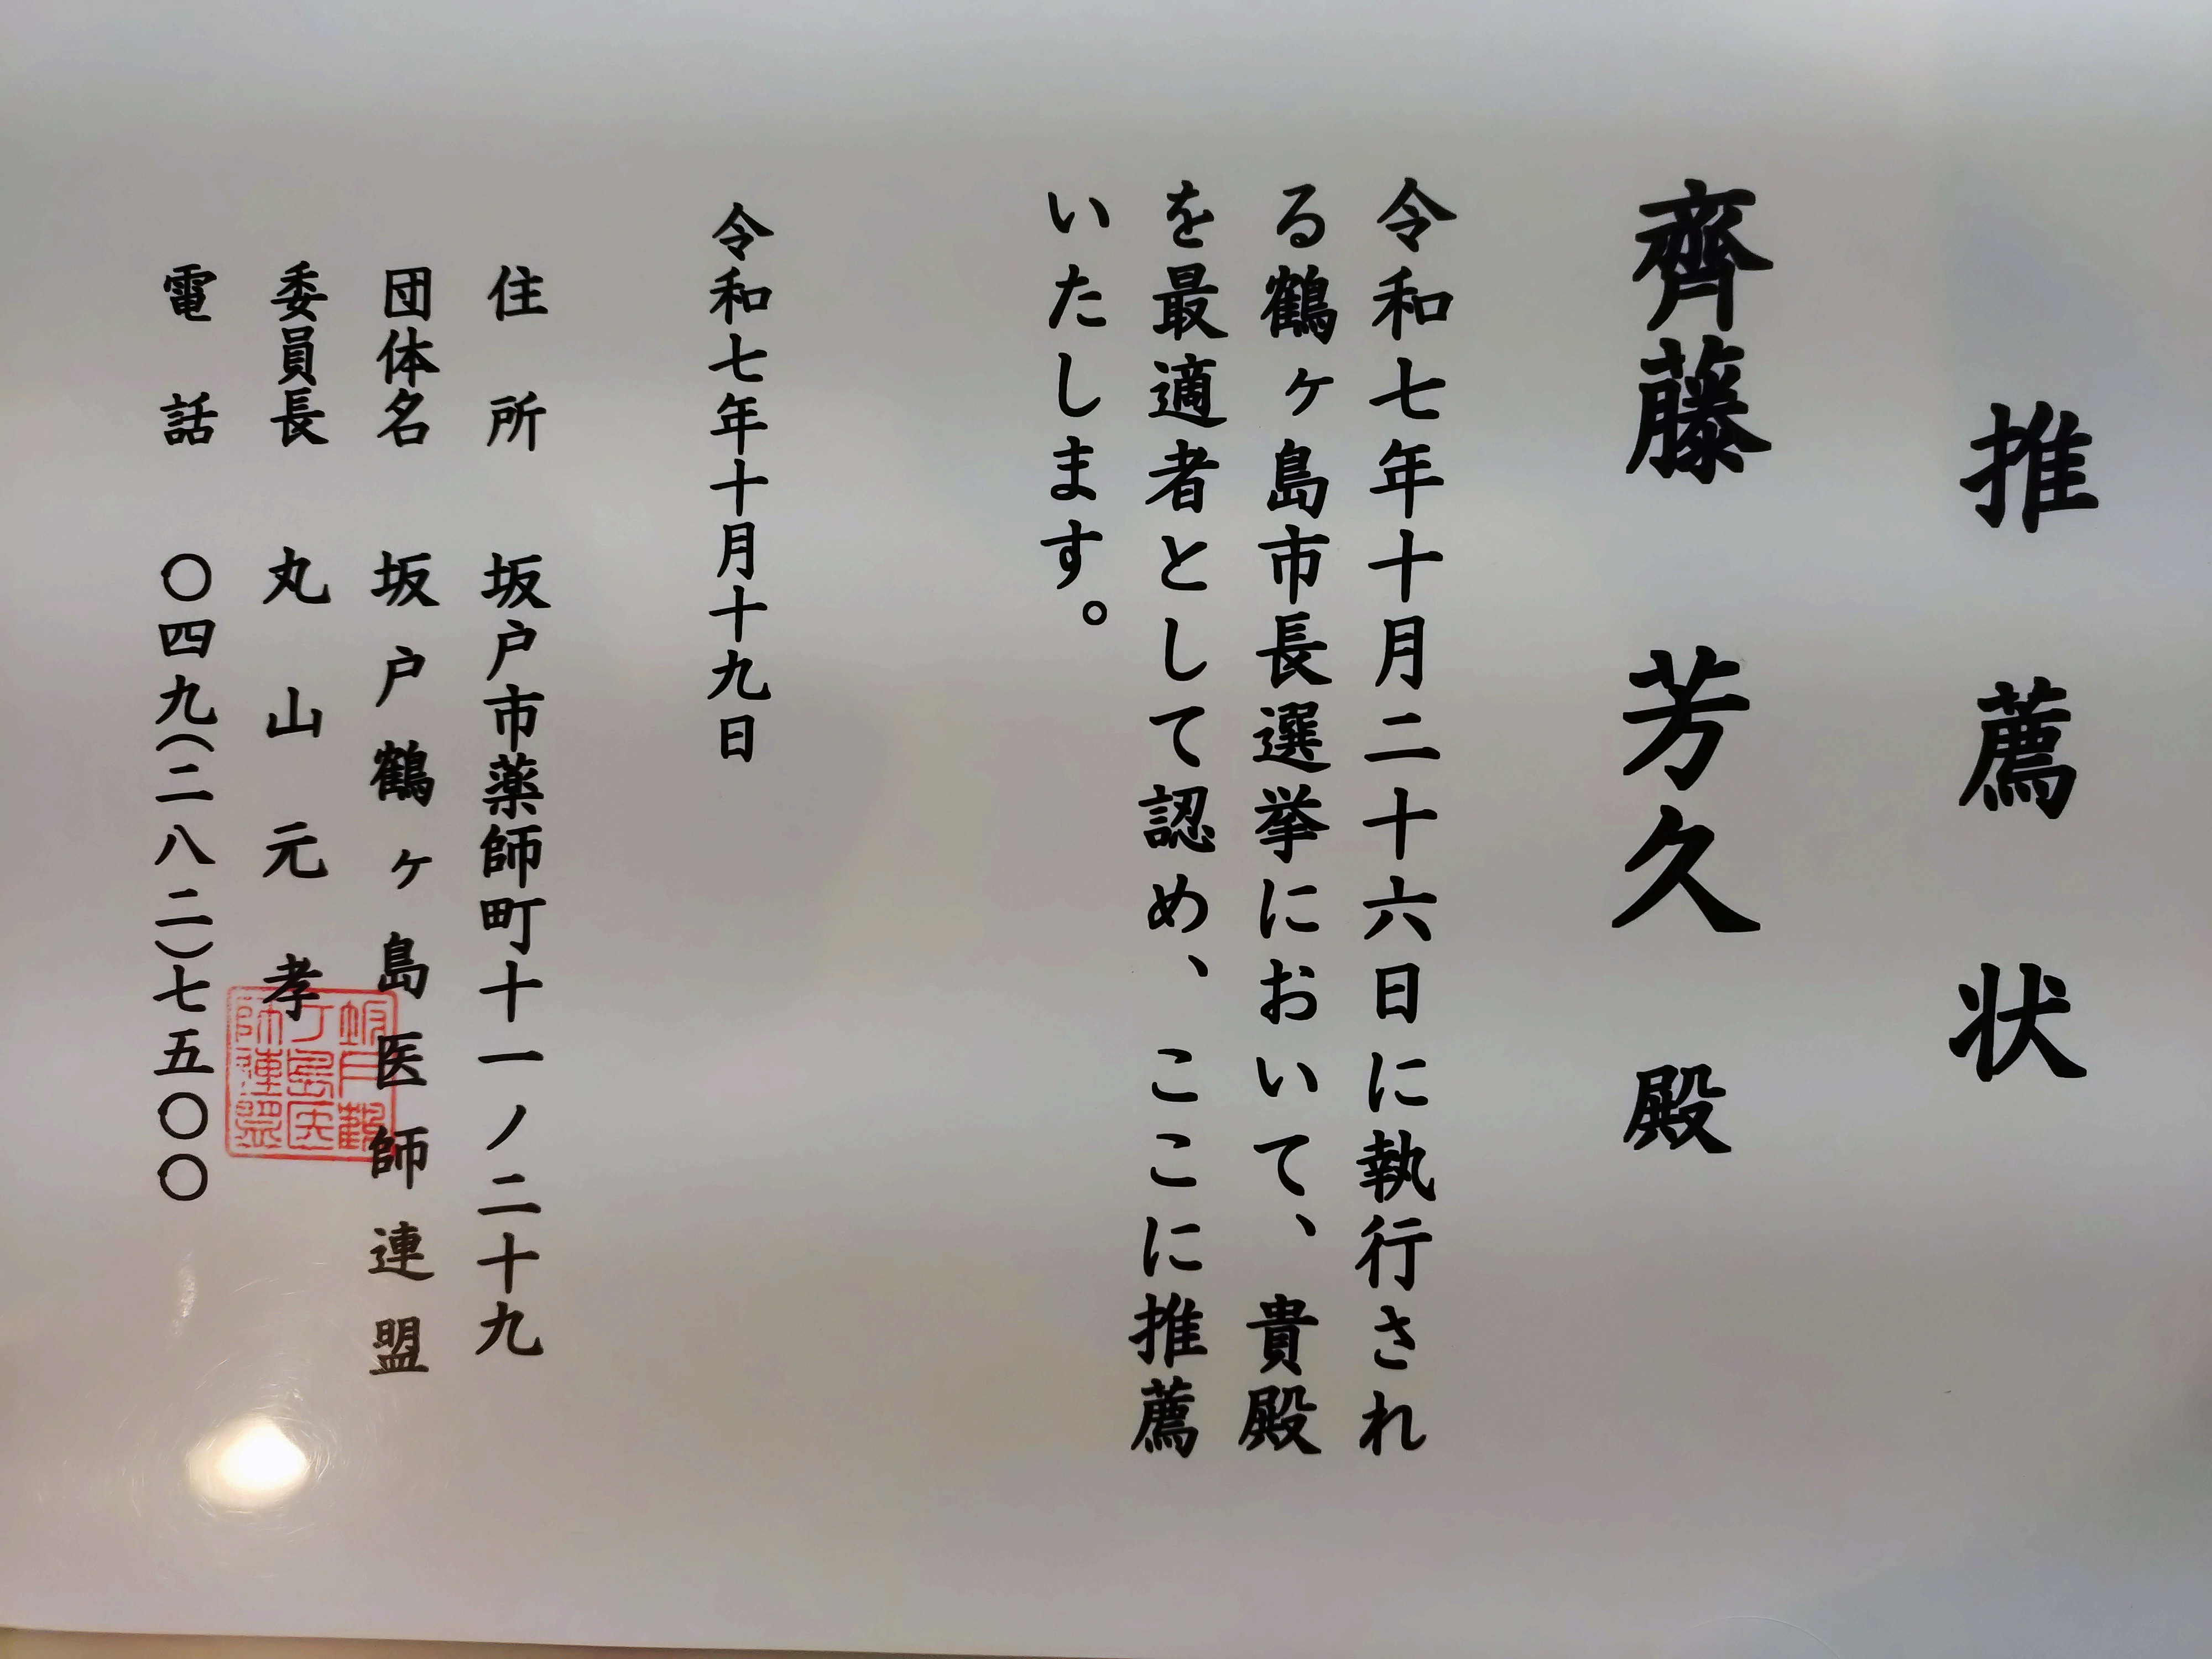 推薦状
齊藤 芳久 殿
令和七年十月二十六日に執行され
る鶴ヶ島市長選挙において、貴殿
を最適者として認め、ここに推薦
いたします。
令和七年十月十九日
住所 坂戸市薬師町十一ノ二十九
団体名 坂戸鶴ヶ島医師連盟
委員長 丸山元孝
電話 〇四九(二八二)七五〇〇
坂戸鶴
ケ島医
師連盟